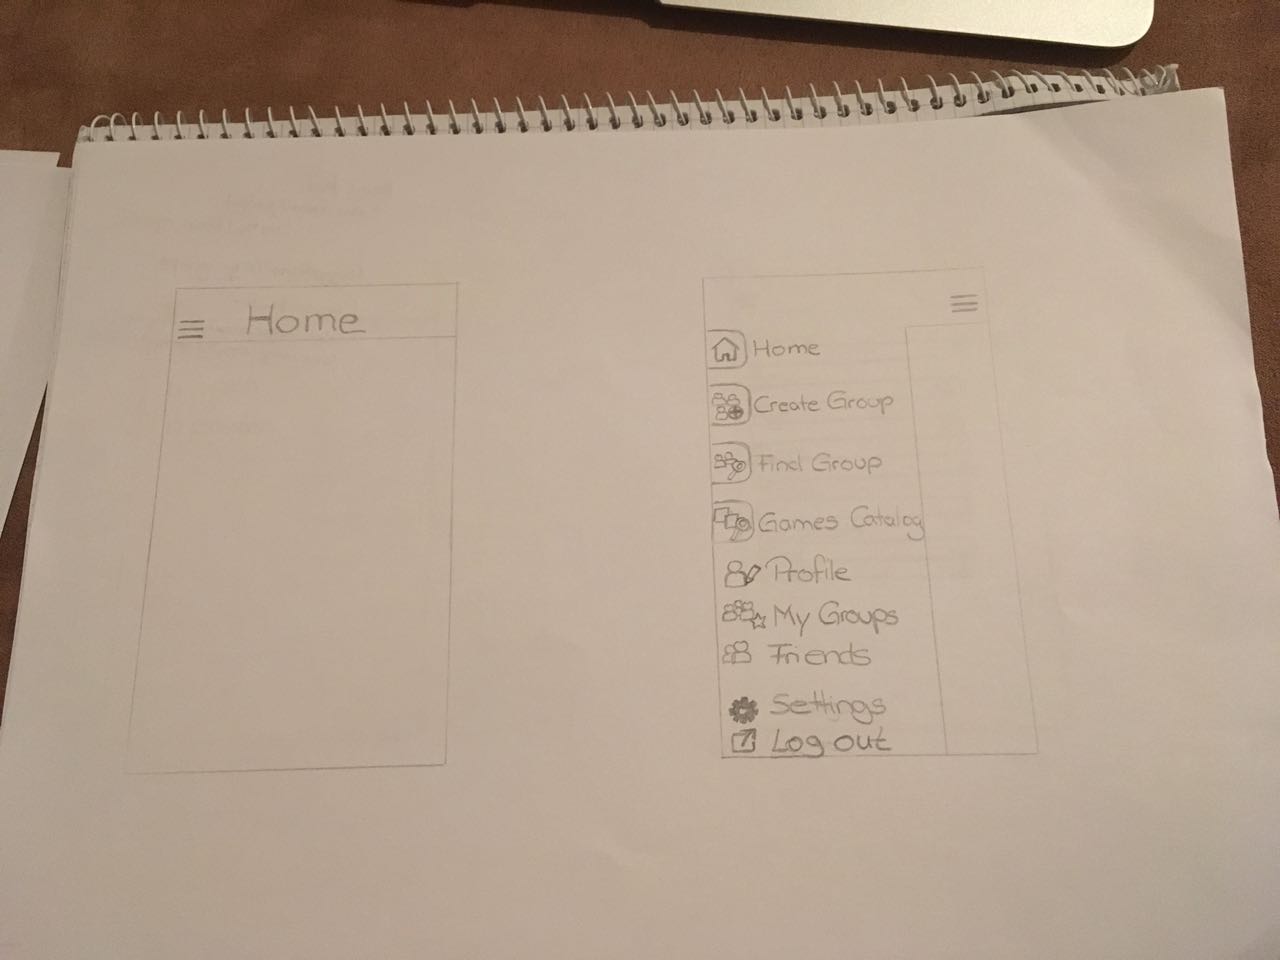 Home
Home
Create Group
Find Group
Games Catalog
Profile
My Groups
Friends
Settings
Log out